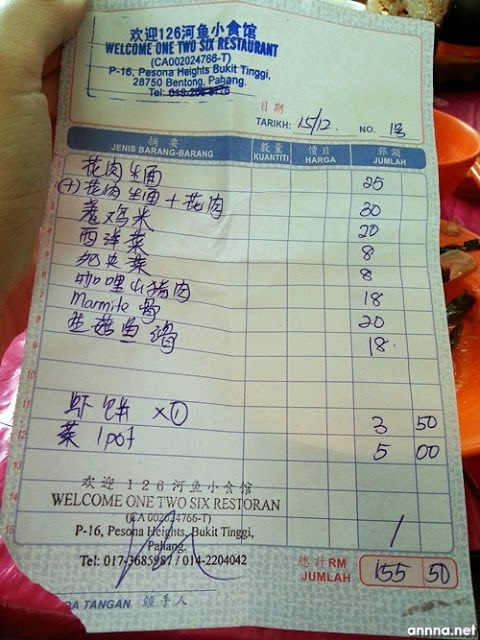 欢迎126河鱼小食馆
WELCOME ONE TWO SIX RESTAURANT
(CA002024766-T)
P-16, Pesona Heights Bukit Tinggi,
28750 Bentong, Pahang.
Tel:
日期
TARIKH: 15/12. NO.
摘要 數量 價目 銀額
JENIS BARANG-BARANG KUANTITI HARGA JUMLAH
花肉生面 25
(+) 花肉生面+花肉 30
姜鸡米 20
西洋菜 8
菜 8
咖哩山猪肉 18
Marmite 骨 20
鱼滑 18
虾饼 x① 3 50
茶 1 pot 5 00
欢迎126河鱼小食馆
WELCOME ONE TWO SIX RESTORAN
(CA 002024766-T)
P-16, Pesona Heights, Bukit Tinggi,
Pahang.
Tel: 017-3685987 / 014-2204042
總計RM
JUMLAH 155 50
DA TANGAN 經手人
annna.net